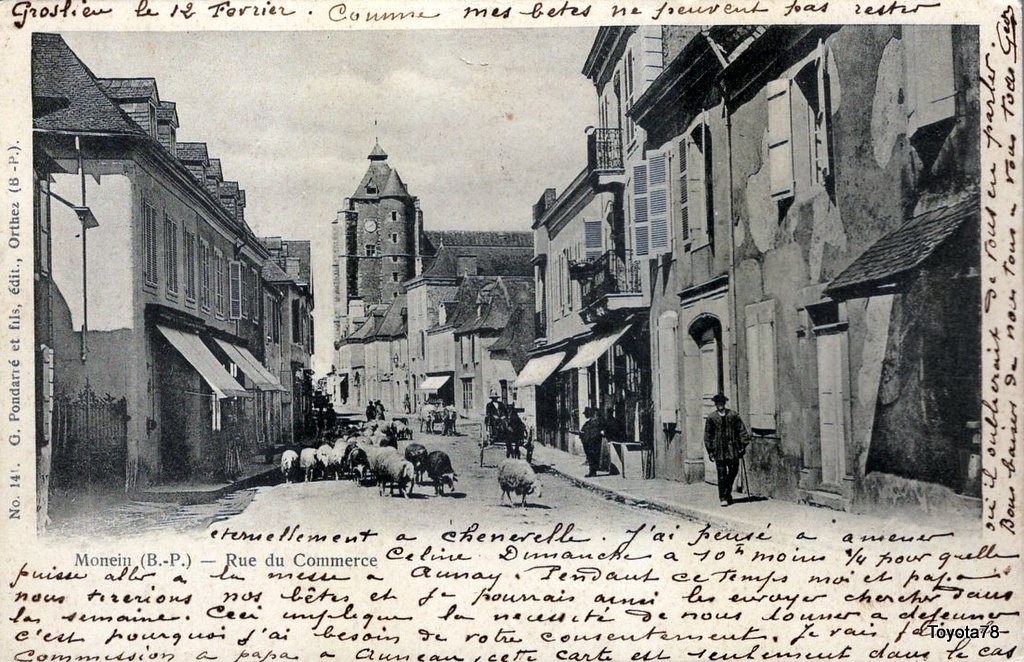 Groslieu le 12 Fevrier. Comme mes bêtes ne peuvent pas rester
eternellement a chenevelle. J'ai pensé a amener
Celine Dimanche a 10h moins 1/4 pour quelle
puisse aller a la messe a Aunay. Pendant ce temps moi et papa
nous tirerions nos bêtes et je pourrais ainsi les envoyer chercher dans
la semaine. Ceci implique la necessité de nous donner a dejeuner
c'est pourquoi j'ai besoin de votre consentement. Je vais faire
Commission a papa a Auneau, cette carte est seulement dans le cas
ou il oublierait de vous en parler.
Bons baisers de nous tous a vous tous
No. 141. G. Pondarré et fils, édit., Orthez (B.-P.).
Monein (B.-P.) — Rue du Commerce
Toyota78